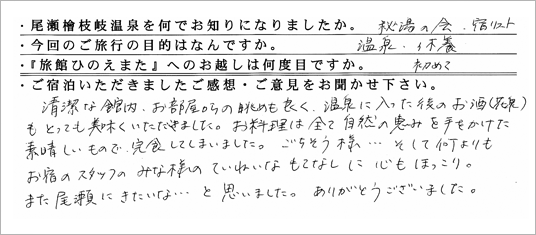 ・尾瀬檜枝岐温泉を何でお知りになりましたか。 秘湯の会．宿リスト
・今回のご旅行の目的はなんですか。 温泉．休養
・『旅館ひのえまた』へのお越しは何度目ですか。 初めて
・ご宿泊いただきましたご感想・ご意見をお聞かせ下さい。
清潔な館内、お部屋からの眺めも良く、温泉に入った後のお酒(花泉)
もとっても美味くいただきました。お料理は全て自然の恵みを手をかけた
素晴しいもので、完食してしまいました。ごちそう様… そして何よりも
お宿のスタッフのみな様のていねいなもてなしに心もほっこり。
また尾瀬にきたいな… と思いました。ありがとうございました。